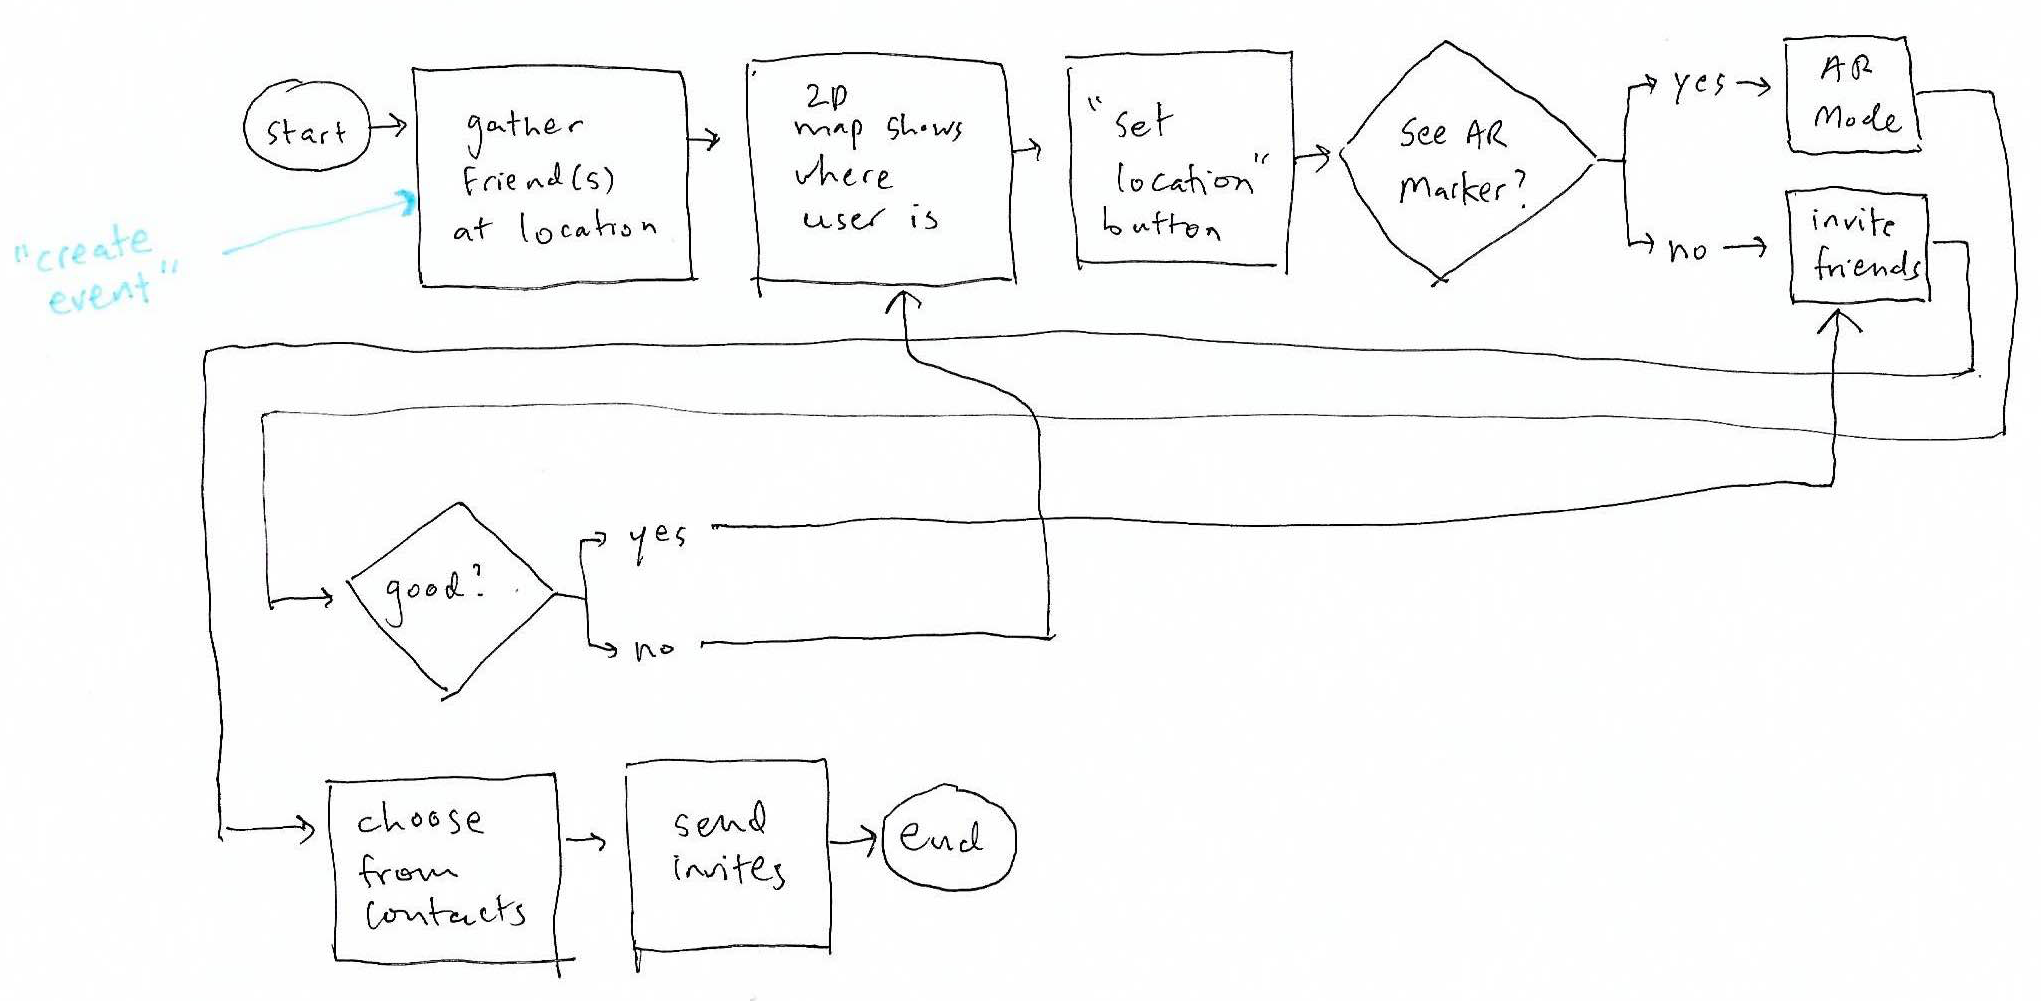 start
gather
Friend(s)
at location
"create
event"
2D
map shows
where
user is
"set
location"
button
See AR
Marker?
yes
no
AR
Mode
invite
friends
good?
yes
no
choose
from
contacts
send
invites
end